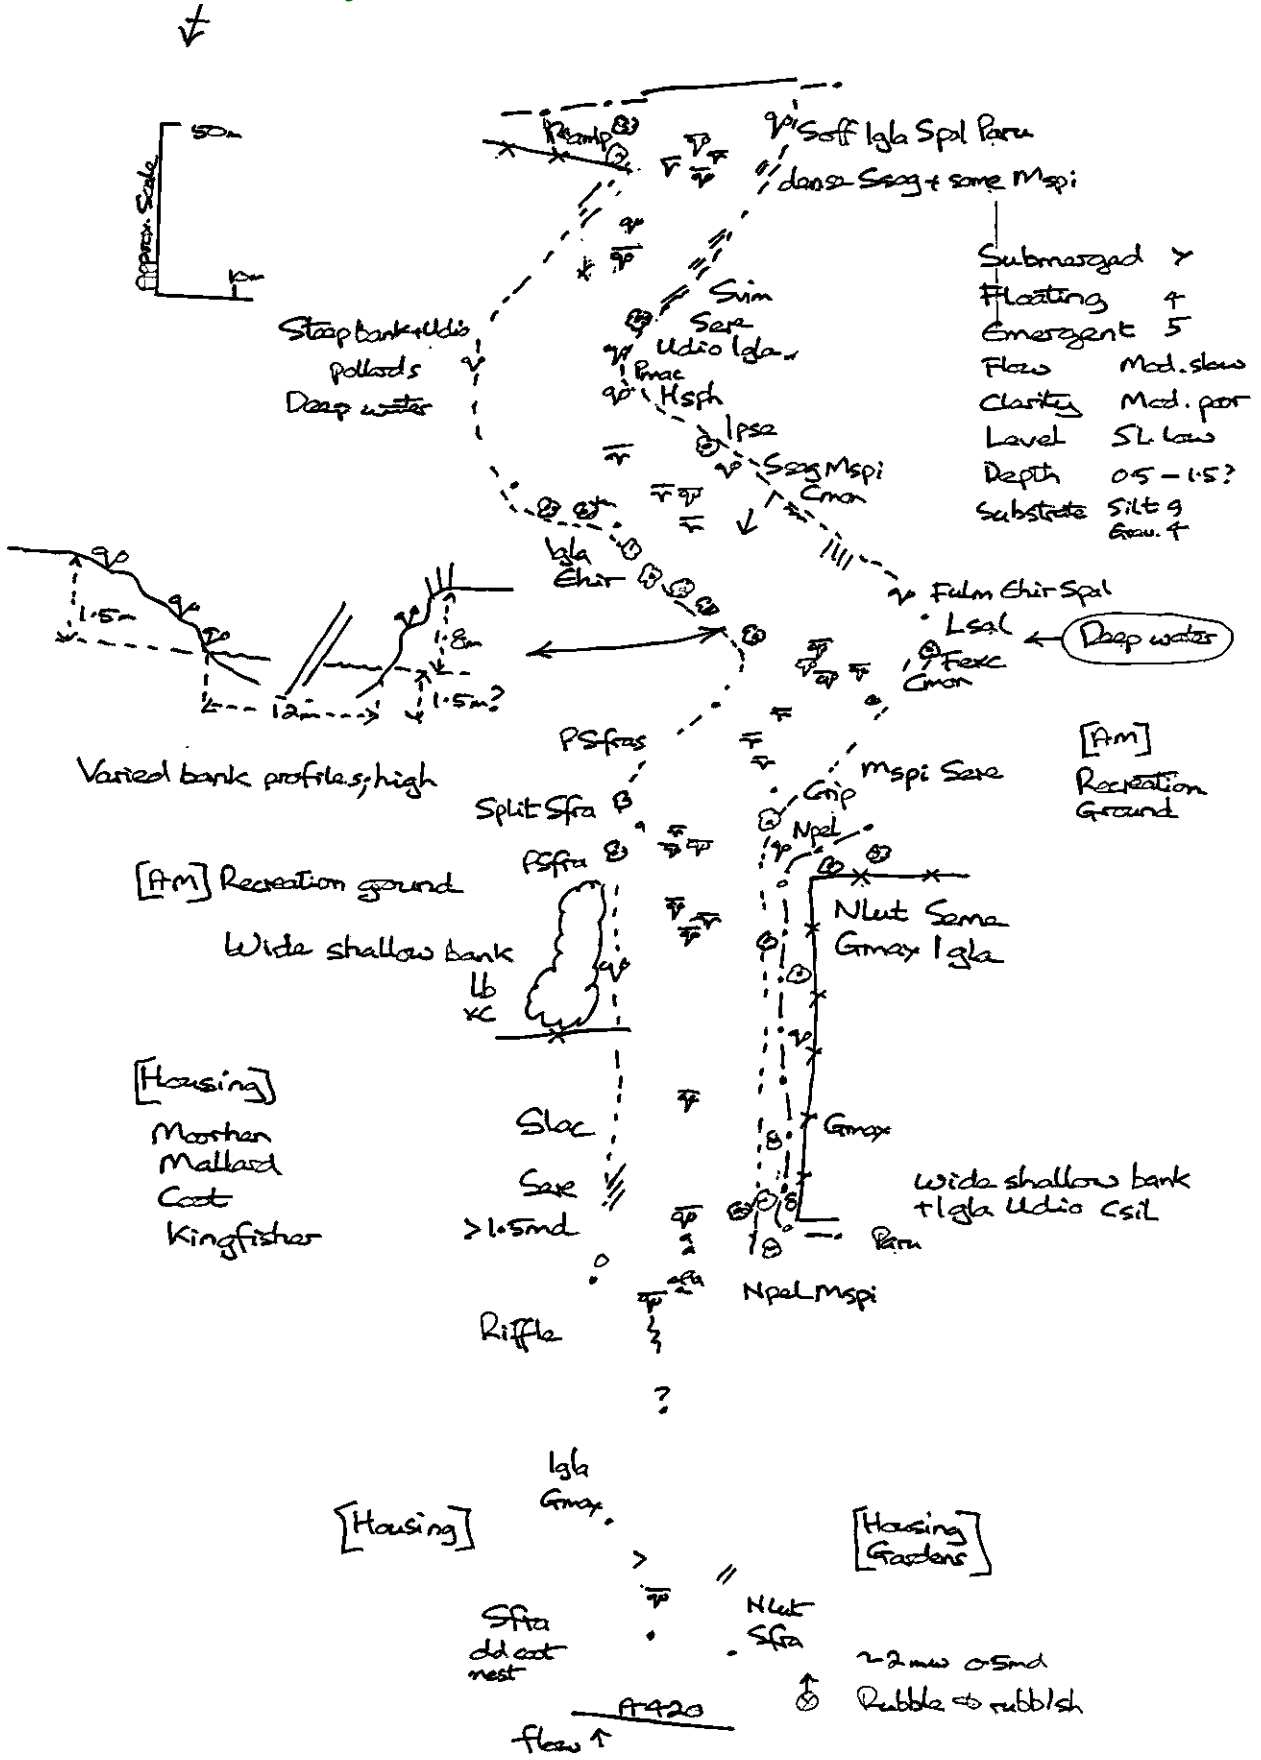 50m
Approx. Scale
10m
Ramp
Soff Igla Spal Paru
dense Sseg + some Mspi
Submerged Y
Floating 4
Emergent 5
Flow Mod. slow
Clarity Mod. poor
Level SL. low
Depth 0.5 - 1.5?
Substrate Silt 9
Grav. 4
Svim
Sere
Udio Igla
Pmac
Hsph
Steep bank + Udio
pollards
Deep water
Ipse
Sseg Mspi
Cmon
Igla
Ehir
1.5m
1.8m
12m
1.5m?
Fulm Ehir Spal
Lsal
Deep water
Fexc
Cmon
PSfras
Varied bank profiles; high
Mspi Sere
Crip
Npel
[Am]
Recreation
Ground
Split Sfra
PSfra
[Am] Recreation gound
Wide shallow bank
Lb
xC
Nlut Seme
Gmax Igla
[Housing]
Moorhen
Mallard
Coot
Kingfisher
Slac
Sere
>1.5md
Gmax
Wide shallow bank
+ Igla Udio Csil
Paru
Npel Mspi
Riffle
?
Igla
Gmax
[Housing]
[Housing
Gardens]
Sfra
old coot
nest
Nlut
Sfra
~2mw 0.5md
Rubble + rubbish
A420
flow